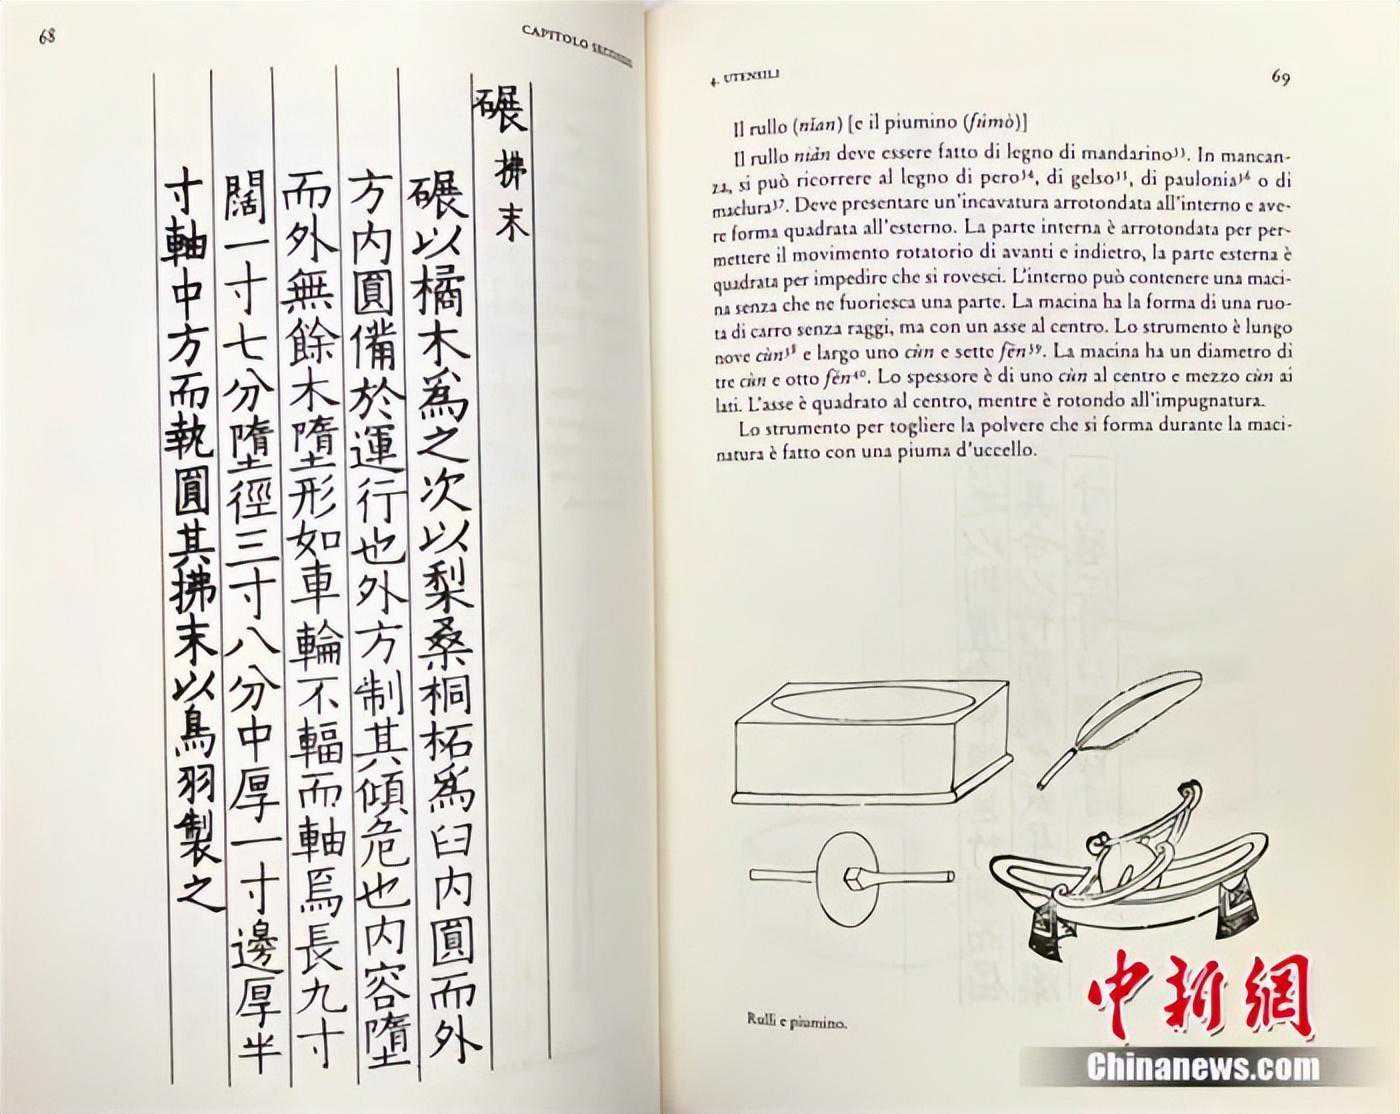 68
CAPITOLO SECONDO
碾 拂末
碾以橘木為之次以梨桑桐柘為臼内圓而外
方内圓備於運行也外方制其傾危也内容墮
而外無餘木墮形如車輪不輻而軸焉長九寸
闊一寸七分墮徑三寸八分中厚一寸邊厚半
寸軸中方而執圓其拂末以鳥羽製之
4. UTENSILI
69
Il rullo (niǎn) [e il piumino (fúmò)]
Il rullo niǎn deve essere fatto di legno di mandarino³³. In mancan-
za, si può ricorrere al legno di pero³⁴, di gelso³⁵, di paulonia³⁶ o di
maclura³⁷. Deve presentare un'incavatura arrotondata all'interno e ave-
re forma quadrata all'esterno. La parte interna è arrotondata per per-
mettere il movimento rotatorio di avanti e indietro, la parte esterna è
quadrata per impedire che si rovesci. L'interno può contenere una maci-
na senza che ne fuoriesca una parte. La macina ha la forma di una ruo-
ta di carro senza raggi, ma con un asse al centro. Lo strumento è lungo
nove cùn³⁸ e largo uno cùn e sette fēn³⁹. La macina ha un diametro di
tre cùn e otto fēn⁴⁰. Lo spessore è di uno cùn al centro e mezzo cùn ai
lati. L'asse è quadrato al centro, mentre è rotondo all'impugnatura.
Lo strumento per togliere la polvere che si forma durante la maci-
natura è fatto con una piuma d'uccello.
Rulli e piumino.
中新網
Chinanews.com